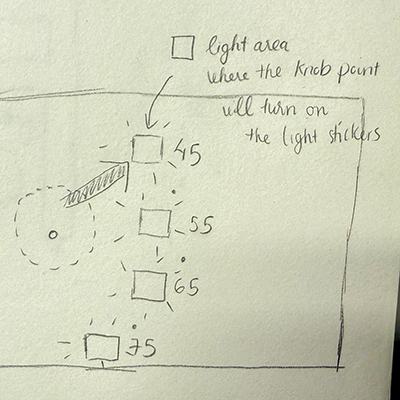 light area
where the knob point
will turn on
the light stickers
45
55
65
75